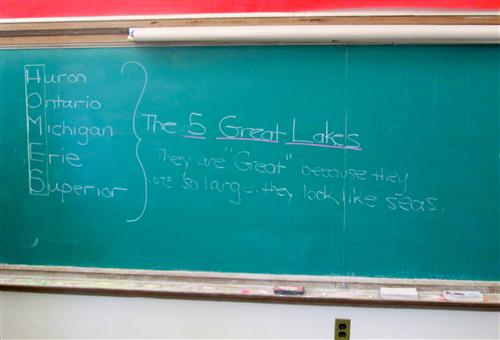 Huron
Ontario
Michigan
Erie
Superior
The 5 Great Lakes
They are "Great" because they
are so larg... they look like seas.